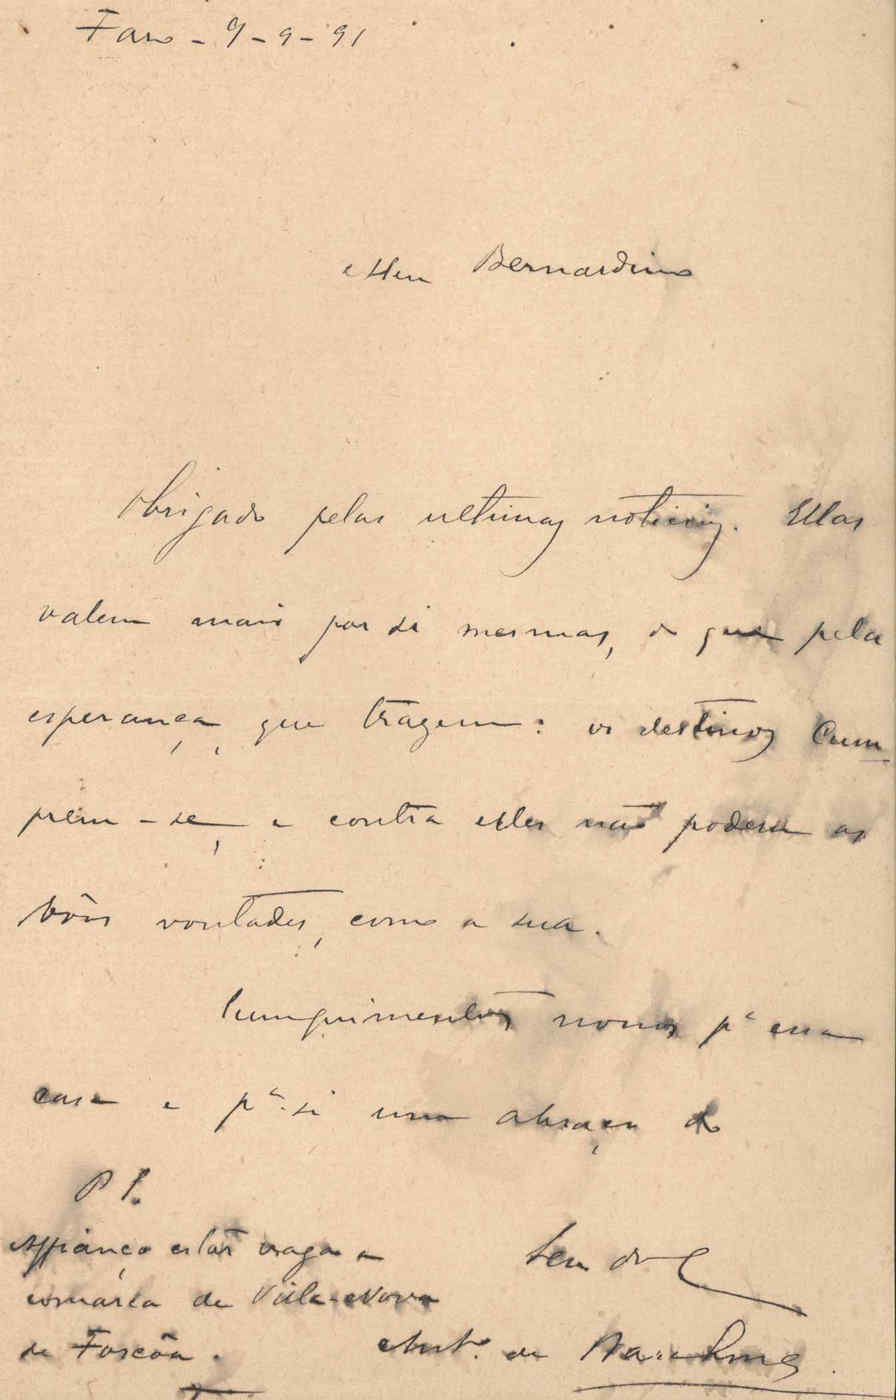 Faro - 9-9-91
Meu Bernardino
Obrigado pelas ultimas noticias. Ellas
valem mais por si mesmas, do que pela
esperança, que trazem: os destinos cum
prem-se, e contra elles não podem as
bôas vontades, como a sua.
Cumprimentos nossos pª essa
casa e pª si um abraço do
P S.
Affianço estar vaga a
comarca de Villa-Nova
de Foscôa.
Seu do C
Antº. de